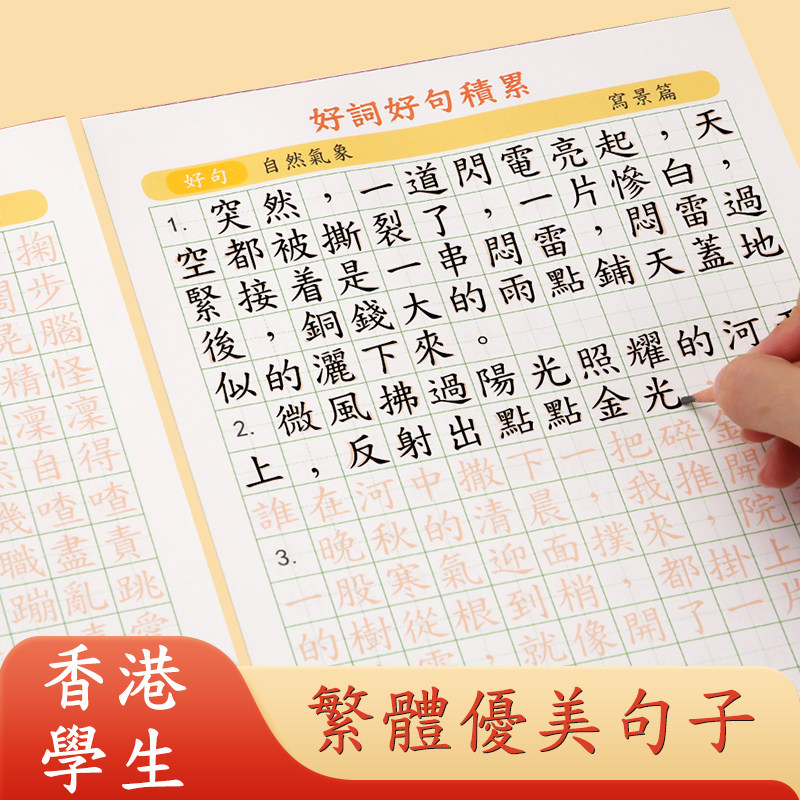 好詞好句積累
寫景篇
好句
自然氣象
1. 突然，一道閃電亮起，天
空都被撕裂了，一片慘白，
緊接着是一串悶雷，悶雷過
後，銅錢大的雨點鋪天蓋地
似的灑下來。
2. 微風拂過陽光照耀的河
上，反射出點點金光
誰在河中撒下一把碎金
3. 晚秋的清晨，我推開
一股寒氣迎面撲來，院
的樹從根到梢，都掛上
，就像開了一片
掬
步
晃腦
精怪
凜凜
自得
嘰喳喳
職盡責
蹦亂跳
愛
香港
學生
繁體優美句子